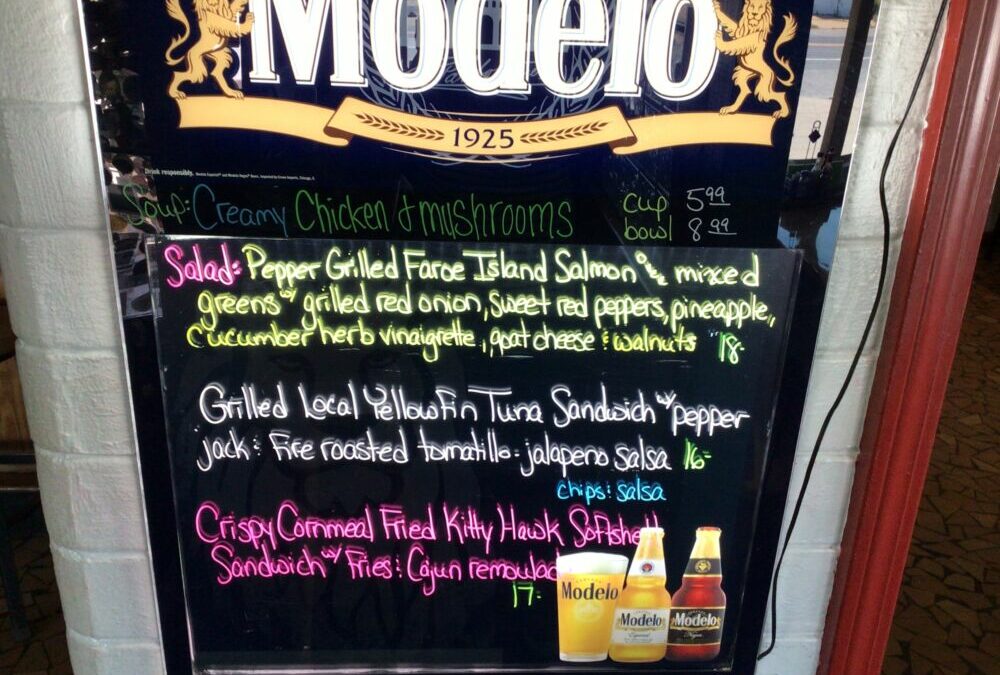 Modelo
1925
Drink responsibly.
Soup: Creamy Chicken & mushrooms cup 5.99
bowl 8.99
Salad: Pepper Grilled Faroe Island Salmon mixed
greens w/ grilled red onion, sweet red peppers, pineapple,
cucumber herb vinaigrette, goat cheese & walnuts 18-
Grilled Local Yellowfin Tuna Sandwich w/ pepper
jack & fire roasted tomatillo-jalapeno salsa 16-
chips & salsa
Crispy Cornmeal Fried Kitty Hawk Softshell
Sandwich w/ Fries & Cajun remoulad
17-
Modelo
Modelo
Especial
Modelo
Negra